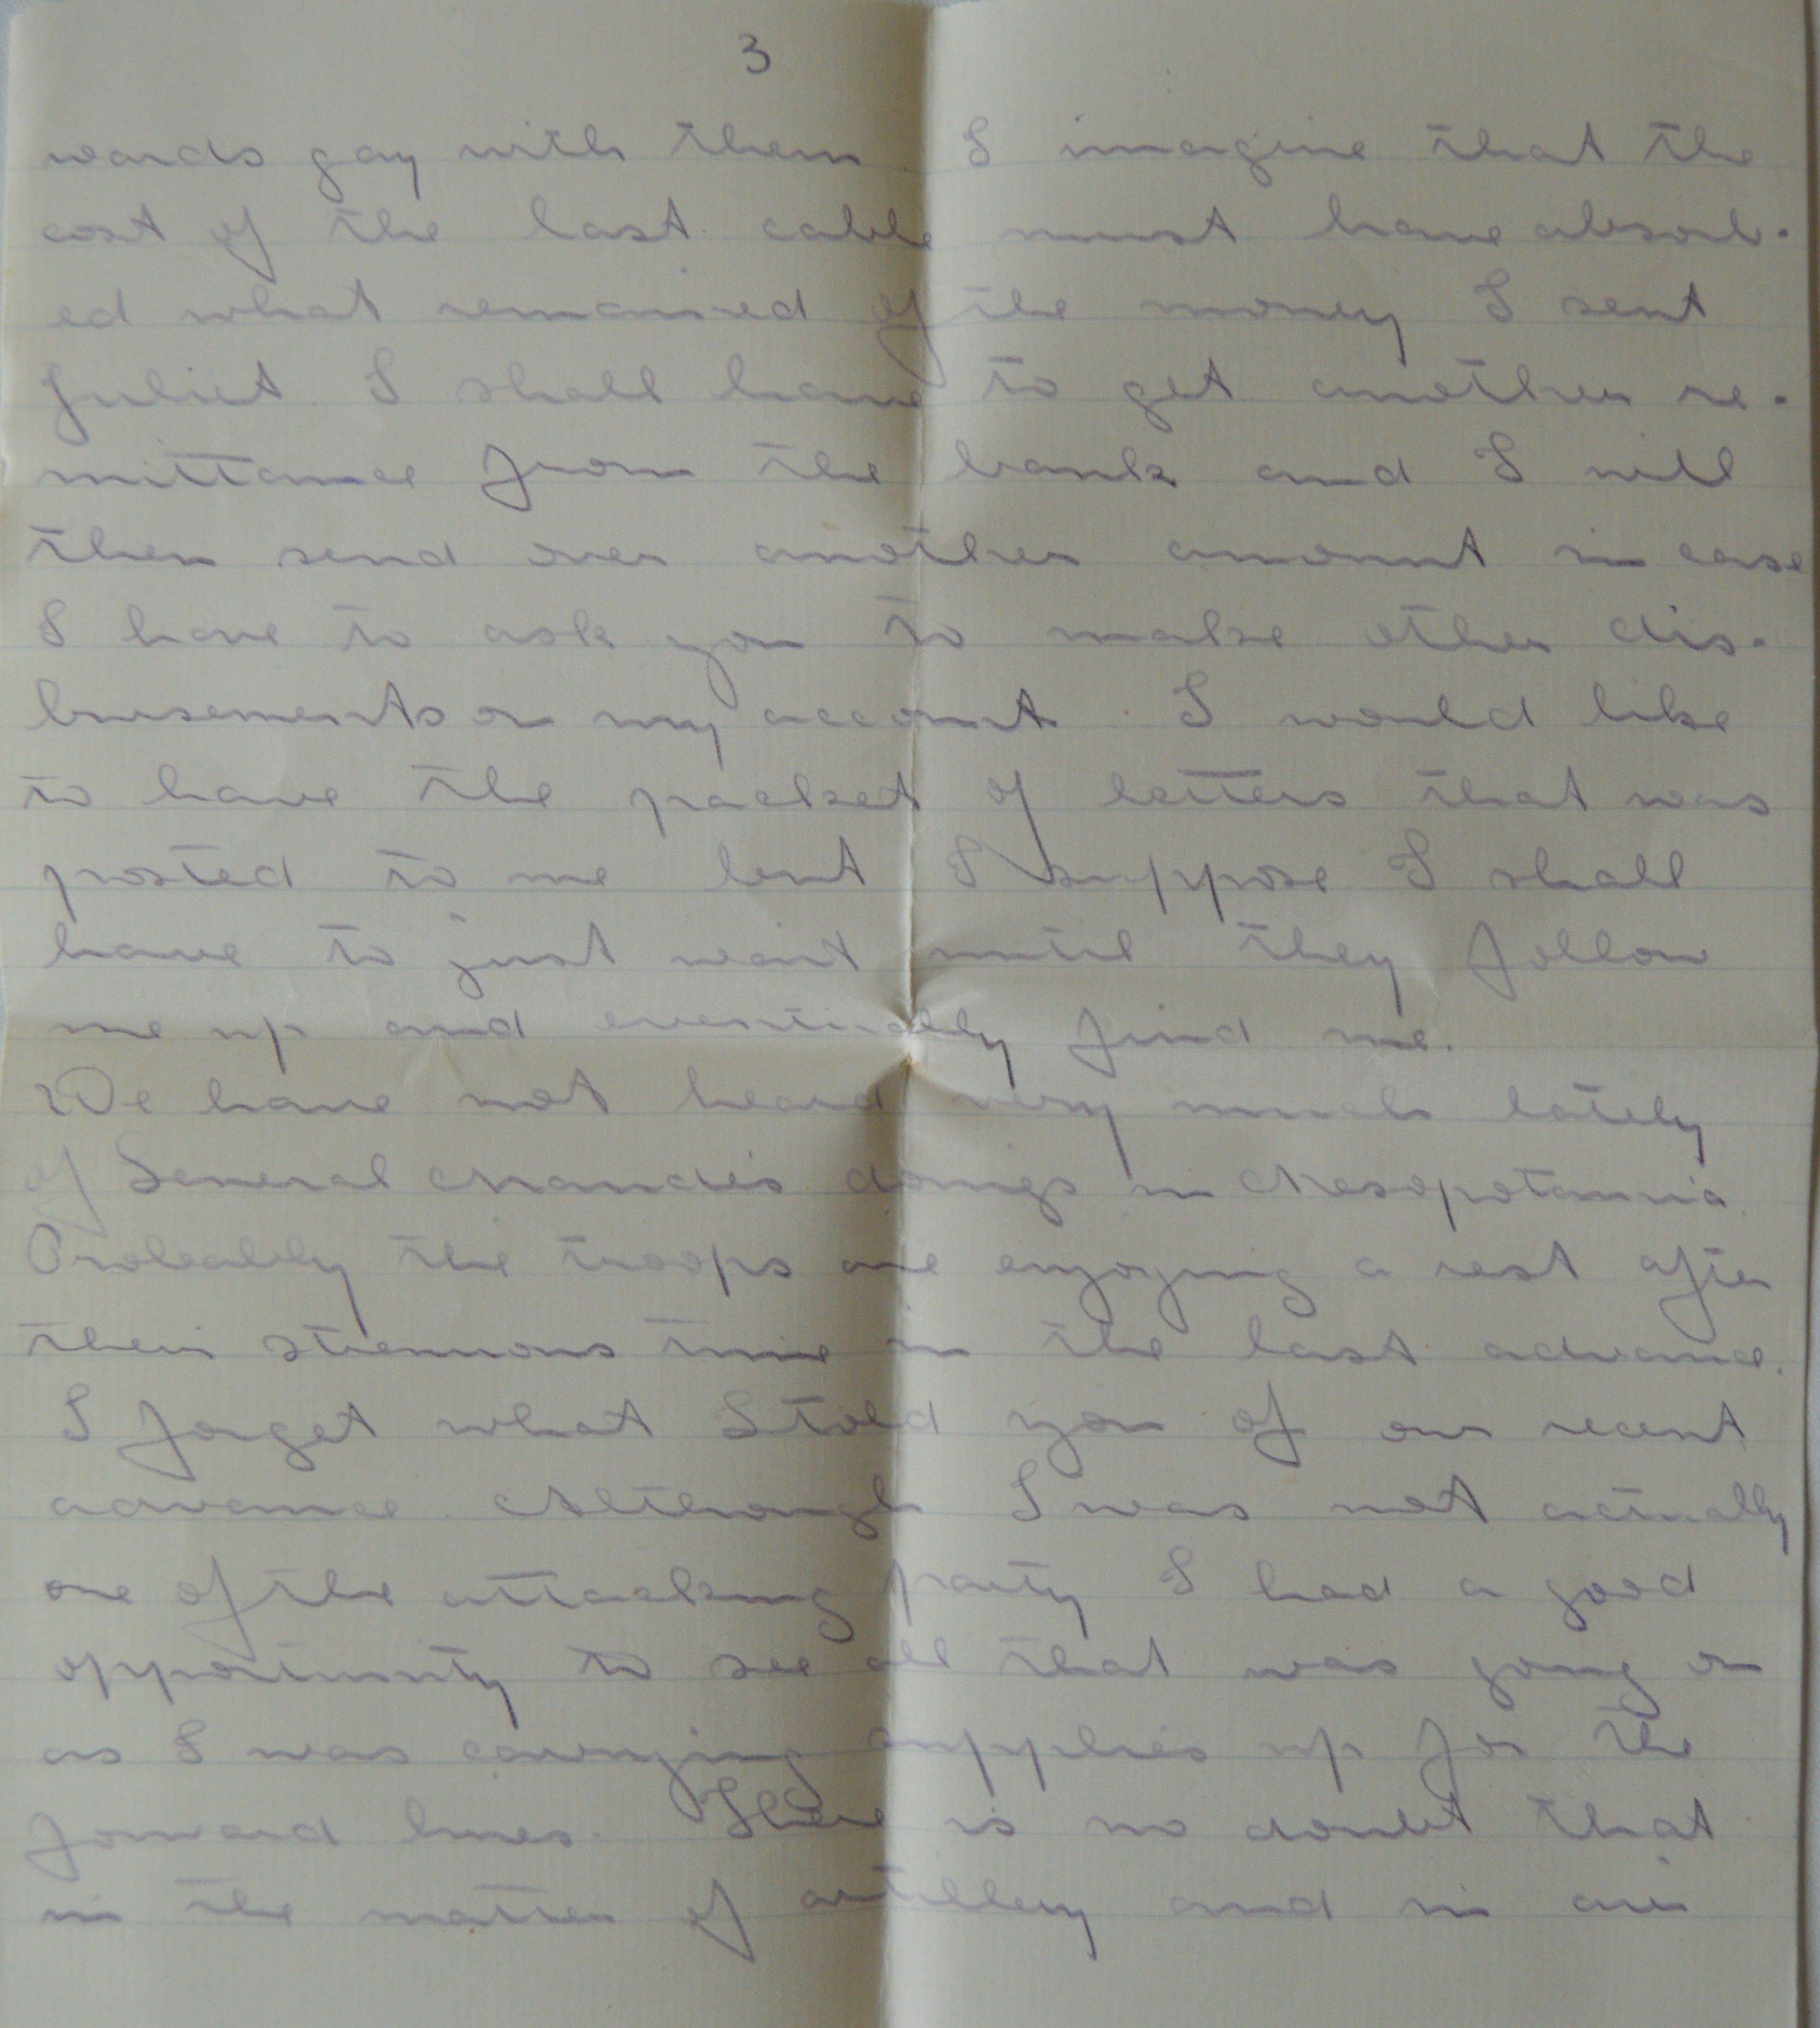 3
wards gay with them. I imagine that the
cost of the last cable must have absorb-
ed what remained of the money I sent
Juliet. I shall have to get another re-
mittance from the bank and I will
then send over another amount in case
I have to ask you to make other dis-
bursements on my account. I would like
to have the packet of letters that was
posted to me but I suppose I shall
have to just wait until they follow
me up and eventually find me.
We have not heard very much lately
of General Maude's doings in Mesopotamia.
Probably the troops are enjoying a rest after
their strenuous time in the last advance.
I forget what I told you of our recent
advance. Although I was not actually
one of the attacking party I had a good
opportunity to see all that was going on
as I was carrying supplies up for the
forward lines. There is no doubt that
in the matter of artillery and in air